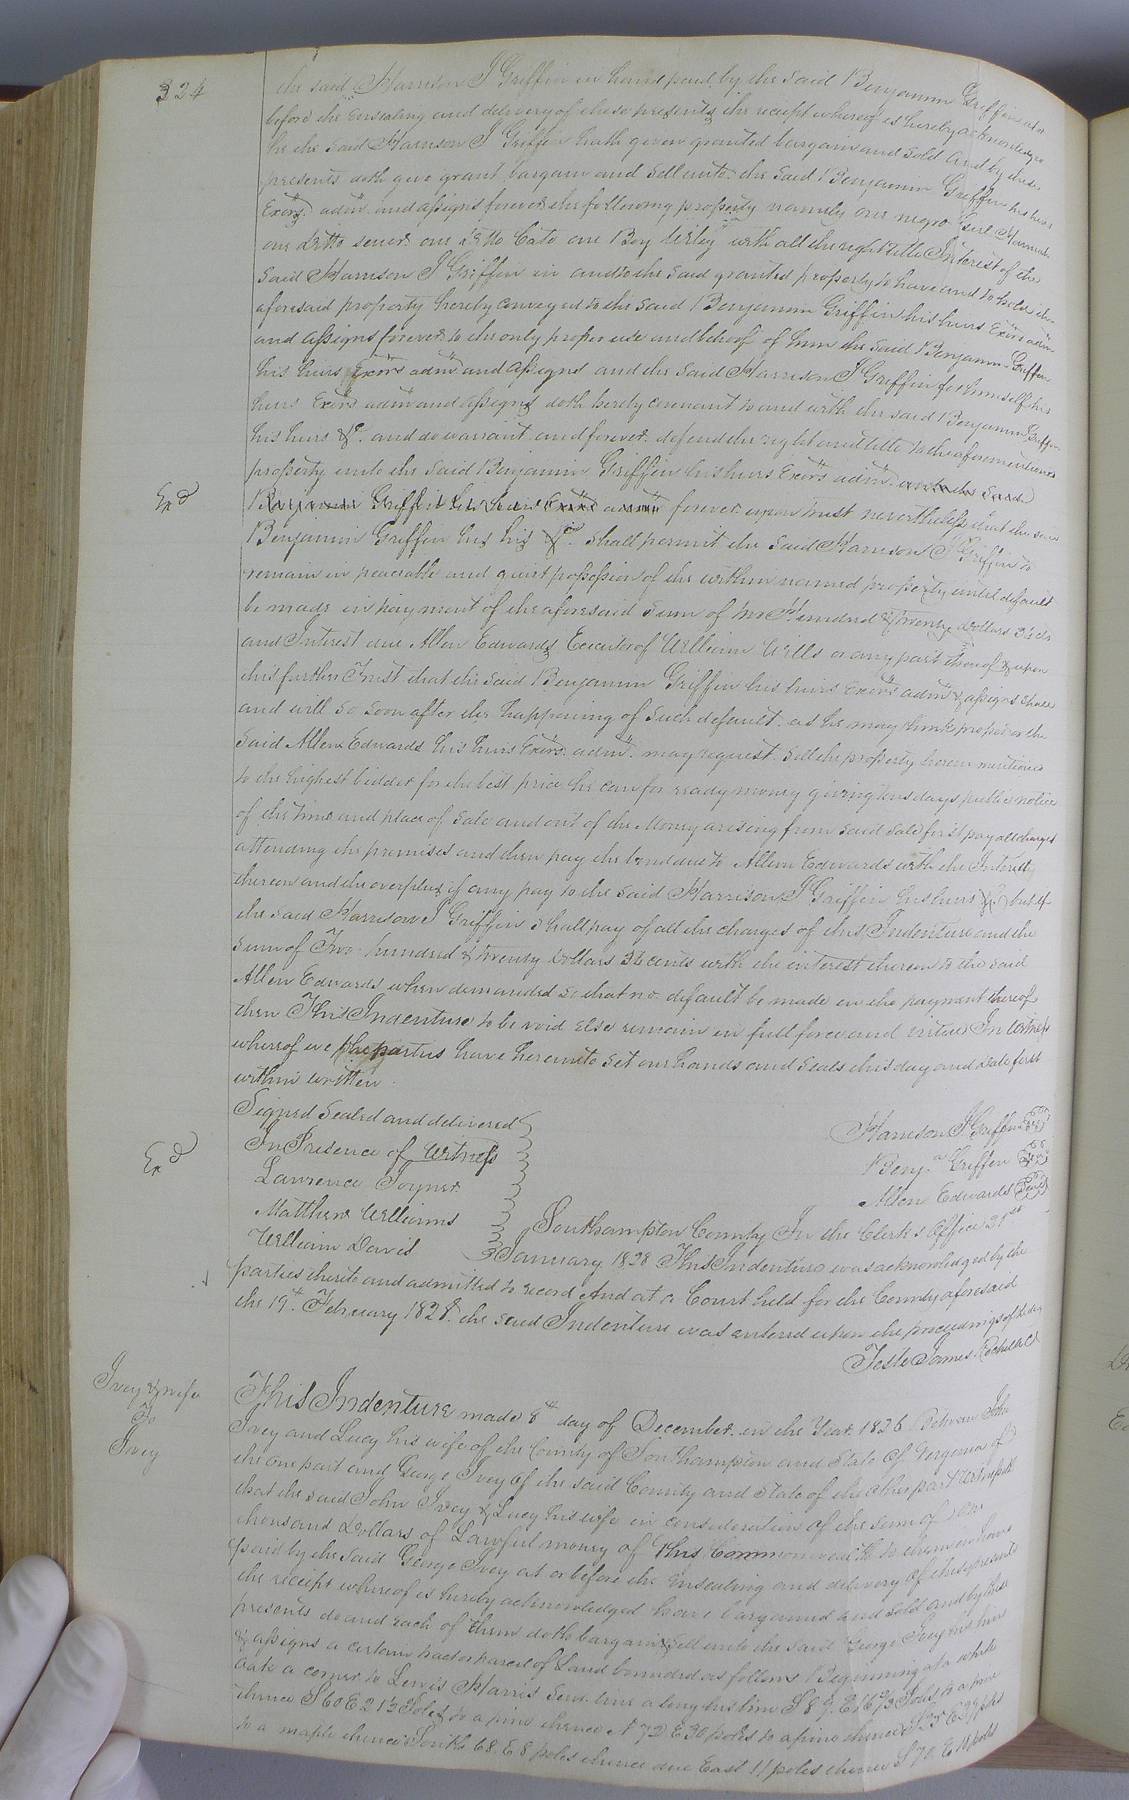 324
the said Harrison J Griffin in hand paid by the said Benjamin Griffin at or
before the ensealing and delivery of these presents the receipt whereof is hereby acknowledged
he the said Harrison J Griffin hath given granted bargain and sold and by these
presents doth give grant bargain and sell unto the said Benjamin Griffin his heirs
Exors. adm. and assigns forever the following property namely one negro Girl Hannah
one ditto one ditto Cato one Boy Wiley with all the right title Interest of the
said Harrison J Griffin in and to the said granted property to have and to hold the
aforesaid property hereby conveyed to the said Benjamin Griffin his heirs Exors adm
and assigns forever to the only proper use and behoof of him the said Benjamin Griffin
his heirs Exors adm and assigns and the said Harrison J Griffin for himself his
heirs Exors adm and assigns doth hereby covenant to and with the said Benjamin Griffin
his heirs &c. and do warrant and forever defend the right and title to the aforementioned
property unto the said Benjamin Griffin his heirs Exors adm. and the said
Exd
Benjamin Griffin his heirs Exors adm forever upon trust nevertheless that the said
Benjamin Griffin his his &c shall permit the said Harrison J Griffin to
remain in peaceable and quiet possession of the within named property until default
be made in payment of the aforesaid sum of two Hundred & Twenty dollars 34 cts
and Interest due Allen Edwards Executor of William Wills or any part thereof & upon
this further Trust that the said Benjamin Griffin his heirs Exors adm & assigns shall
and will so soon after the happening of such default as he may think proper or the
said Allen Edwards his heirs Exors. adm. may request sell the property herein mentioned
to the highest bidder for the best price he can for ready money giving tens days public notice
of the time and place of sale and out of the Money arising from said Sale first pay all charges
attending the premises and then pay the bond due to Allen Edwards with the Interest
thereon and the overplus if any pay to the said Harrison J Griffin his heirs &c. but if
the said Harrison J Griffin shall pay of all the charges of this Indenture and the
sum of Two hundred & twenty dollars 34 cents with the interest thereon to the said
Allen Edwards when demanded so that no default be made in the payment thereof
then This Indenture to be void Else remain in full force and virtue In witness
whereof we the parties have hereunto set our hands and seals this day and date first
within written.
Signed Sealed and delivered
In Presence of Witness
Exd
Lawrence Joyner
Matthew Williams
William Davis
Harrison J Griffin Seal
Benj.n Griffin Seal
Allen Edwards Seal
Southampton County In the Clerk's Office 21st
January 1828 This Indenture was acknowledged by the
parties thereto and admitted to record And at a Court held for the County aforesaid
the 19th February 1828. the said Indenture was entered upon the proceedings of the day
Teste James Rochelle Cl
Ivey & wife
To
Ivey
This Indenture made 8th day of December in the Year 1826 Between John
Ivey and Lucy his wife of the County of Southampton and State of Virginia of
the one part and George Ivey of the said County and State of the other part Witnesseth
that the said John Ivey & Lucy his wife in consideration of the sum of
thousand Dollars of Lawful money of this Commonwealth to them in hand
paid by the said George Ivey at or before the ensealing and delivery of these presents
the receipt whereof is hereby acknowledged have bargained and sold and by these
presents do and each of them doth bargain & sell unto the said George Ivey his heirs
& assigns a certain tract or parcel of Land bounded as follows Beginning at a white
oak a corner to Lewis Harris line along his line S 89. E 16 2/3 Poles to a pine
thence S 60 E 21 1/2 Poles to a pine thence N 72 E 30 poles to a pine thence S 25 E 29 poles
to a maple thence South 68. E 8 poles thence due East 11 poles thence S 70. E 11 poles